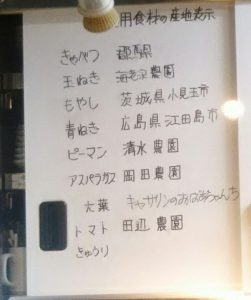 用食材の産地表示
きゃべつ 群馬県
玉ねぎ 海老沢農園
もやし 茨城県小美玉市
青ねぎ 広島県江田島市
ピーマン 清水農園
アスパラガス 岡田農園
大葉 キャサリンのおばあちゃんち
トマト 田辺農園
きゅうり